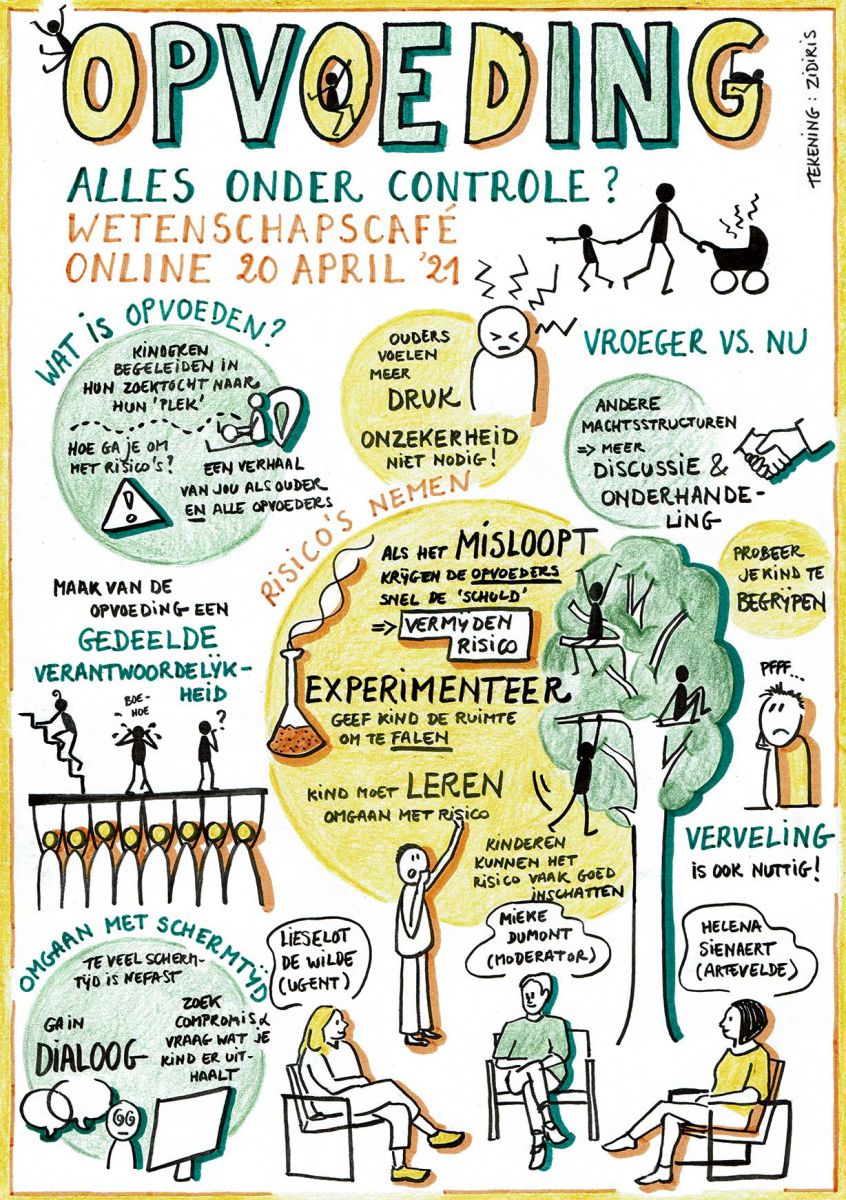 OPVOEDING
TEKENING: ZIDIRIS
ALLES ONDER CONTROLE?
WETENSCHAPSCAFÉ
ONLINE 20 APRIL '21
WAT IS OPVOEDEN?
KINDEREN
BEGELEIDEN IN
HUN ZOEKTOCHT NAAR
HUN 'PLEK'
HOE GA JE OM
MET RISICO'S?
EEN VERHAAL
VAN JOU ALS OUDER
EN ALLE OPVOEDERS
OUDERS
VOELEN
MEER
DRUK
ONZEKERHEID
NIET NODIG!
VROEGER VS. NU
ANDERE
MACHTSSTRUCTUREN
=> MEER
DISCUSSIE &
ONDERHANDE-
LING
PROBEER
JE KIND TE
BEGRIJPEN
RISICO'S NEMEN
ALS HET MISLOOPT
KRIJGEN DE OPVOEDERS
SNEL DE 'SCHULD'
=> VERMIJDEN
RISICO
EXPERIMENTEER
GEEF KIND DE RUIMTE
OM TE FALEN
KIND MOET LEREN
OMGAAN MET RISICO
KINDEREN
KUNNEN HET
RISICO VAAK GOED
INSCHATTEN
MAAK VAN DE
OPVOEDING EEN
GEDEELDE
VERANTWOORDELIJK-
HEID
BOE-
HOE
?
PFFF...
VERVELING
IS OOK NUTTIG!
OMGAAN MET SCHERMTIJD
TE VEEL SCHERM-
TIJD IS NEFAST
GA IN
DIALOOG
ZOEK
COMPROMIS &
VRAAG WAT JE
KIND ER UIT-
HAALT
LIESELOT
DE WILDE
(UGENT)
MIEKE
DUMONT
(MODERATOR)
HELENA
SIENAERT
(ARTEVELDE)